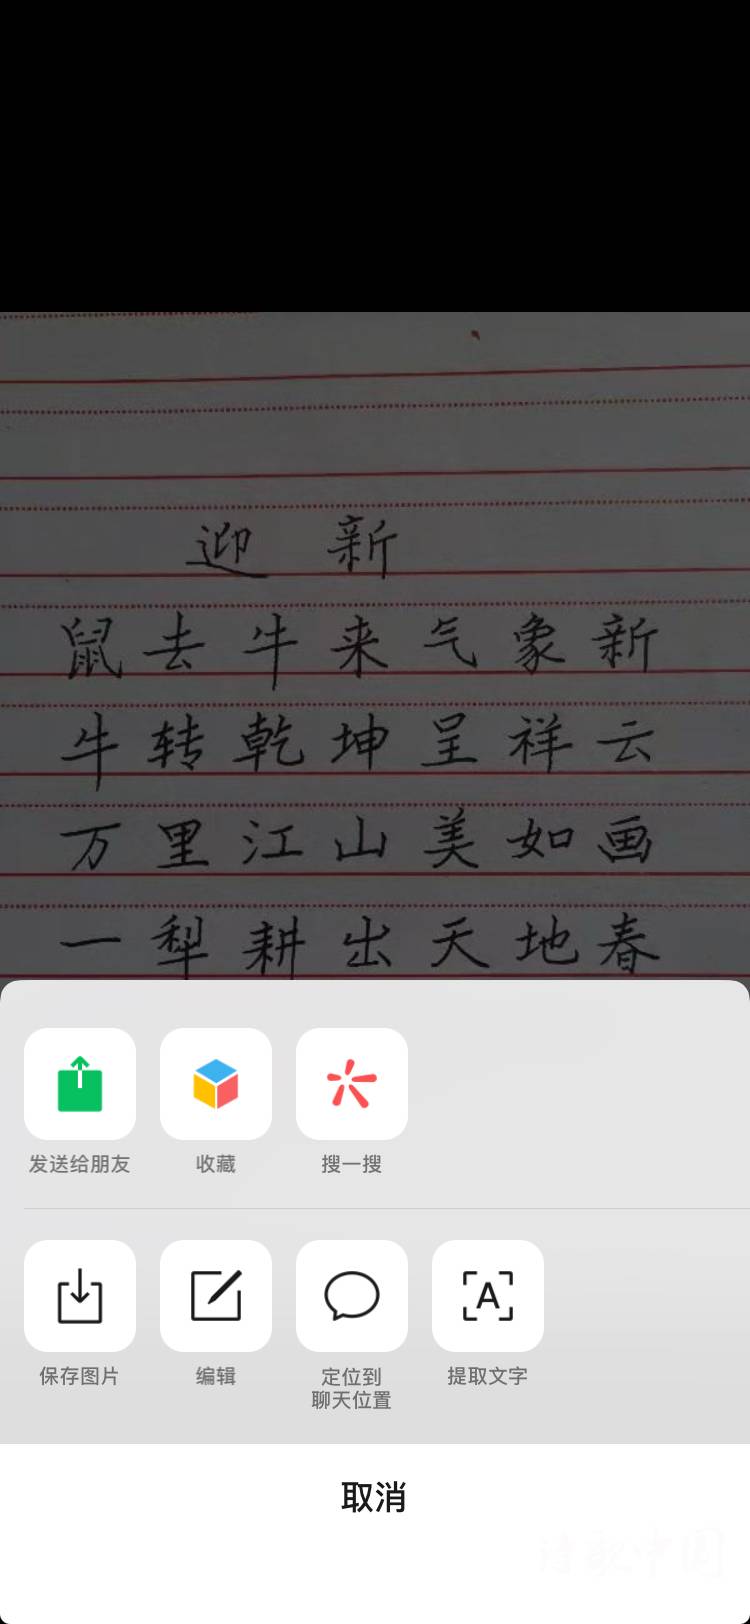 迎新
鼠去牛来气象新
牛转乾坤呈祥云
万里江山美如画
一犁耕出天地春
发送给朋友
收藏
搜一搜
保存图片
编辑
定位到
聊天位置
提取文字
取消
诗歌中国